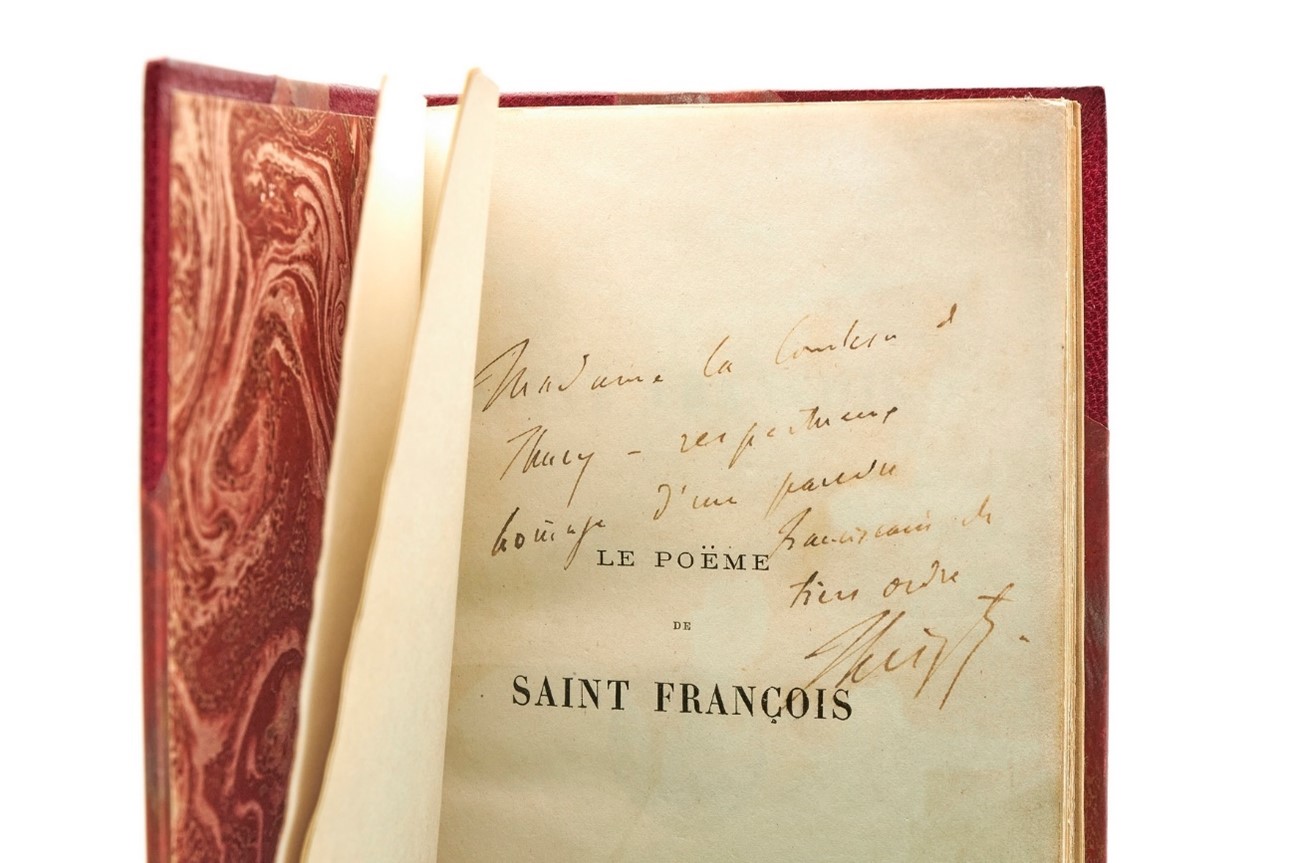 Madame la Comtesse d
Thury – respectueux
hom̄age d'un pauvre
franciscain du
tiers ordre
FLiszt.
LE POËME
DE
SAINT FRANÇOIS